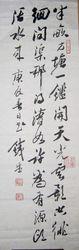 半畝方塘一鑑開天光雲影共徘
徊問渠那得清如許為有源頭
活水來